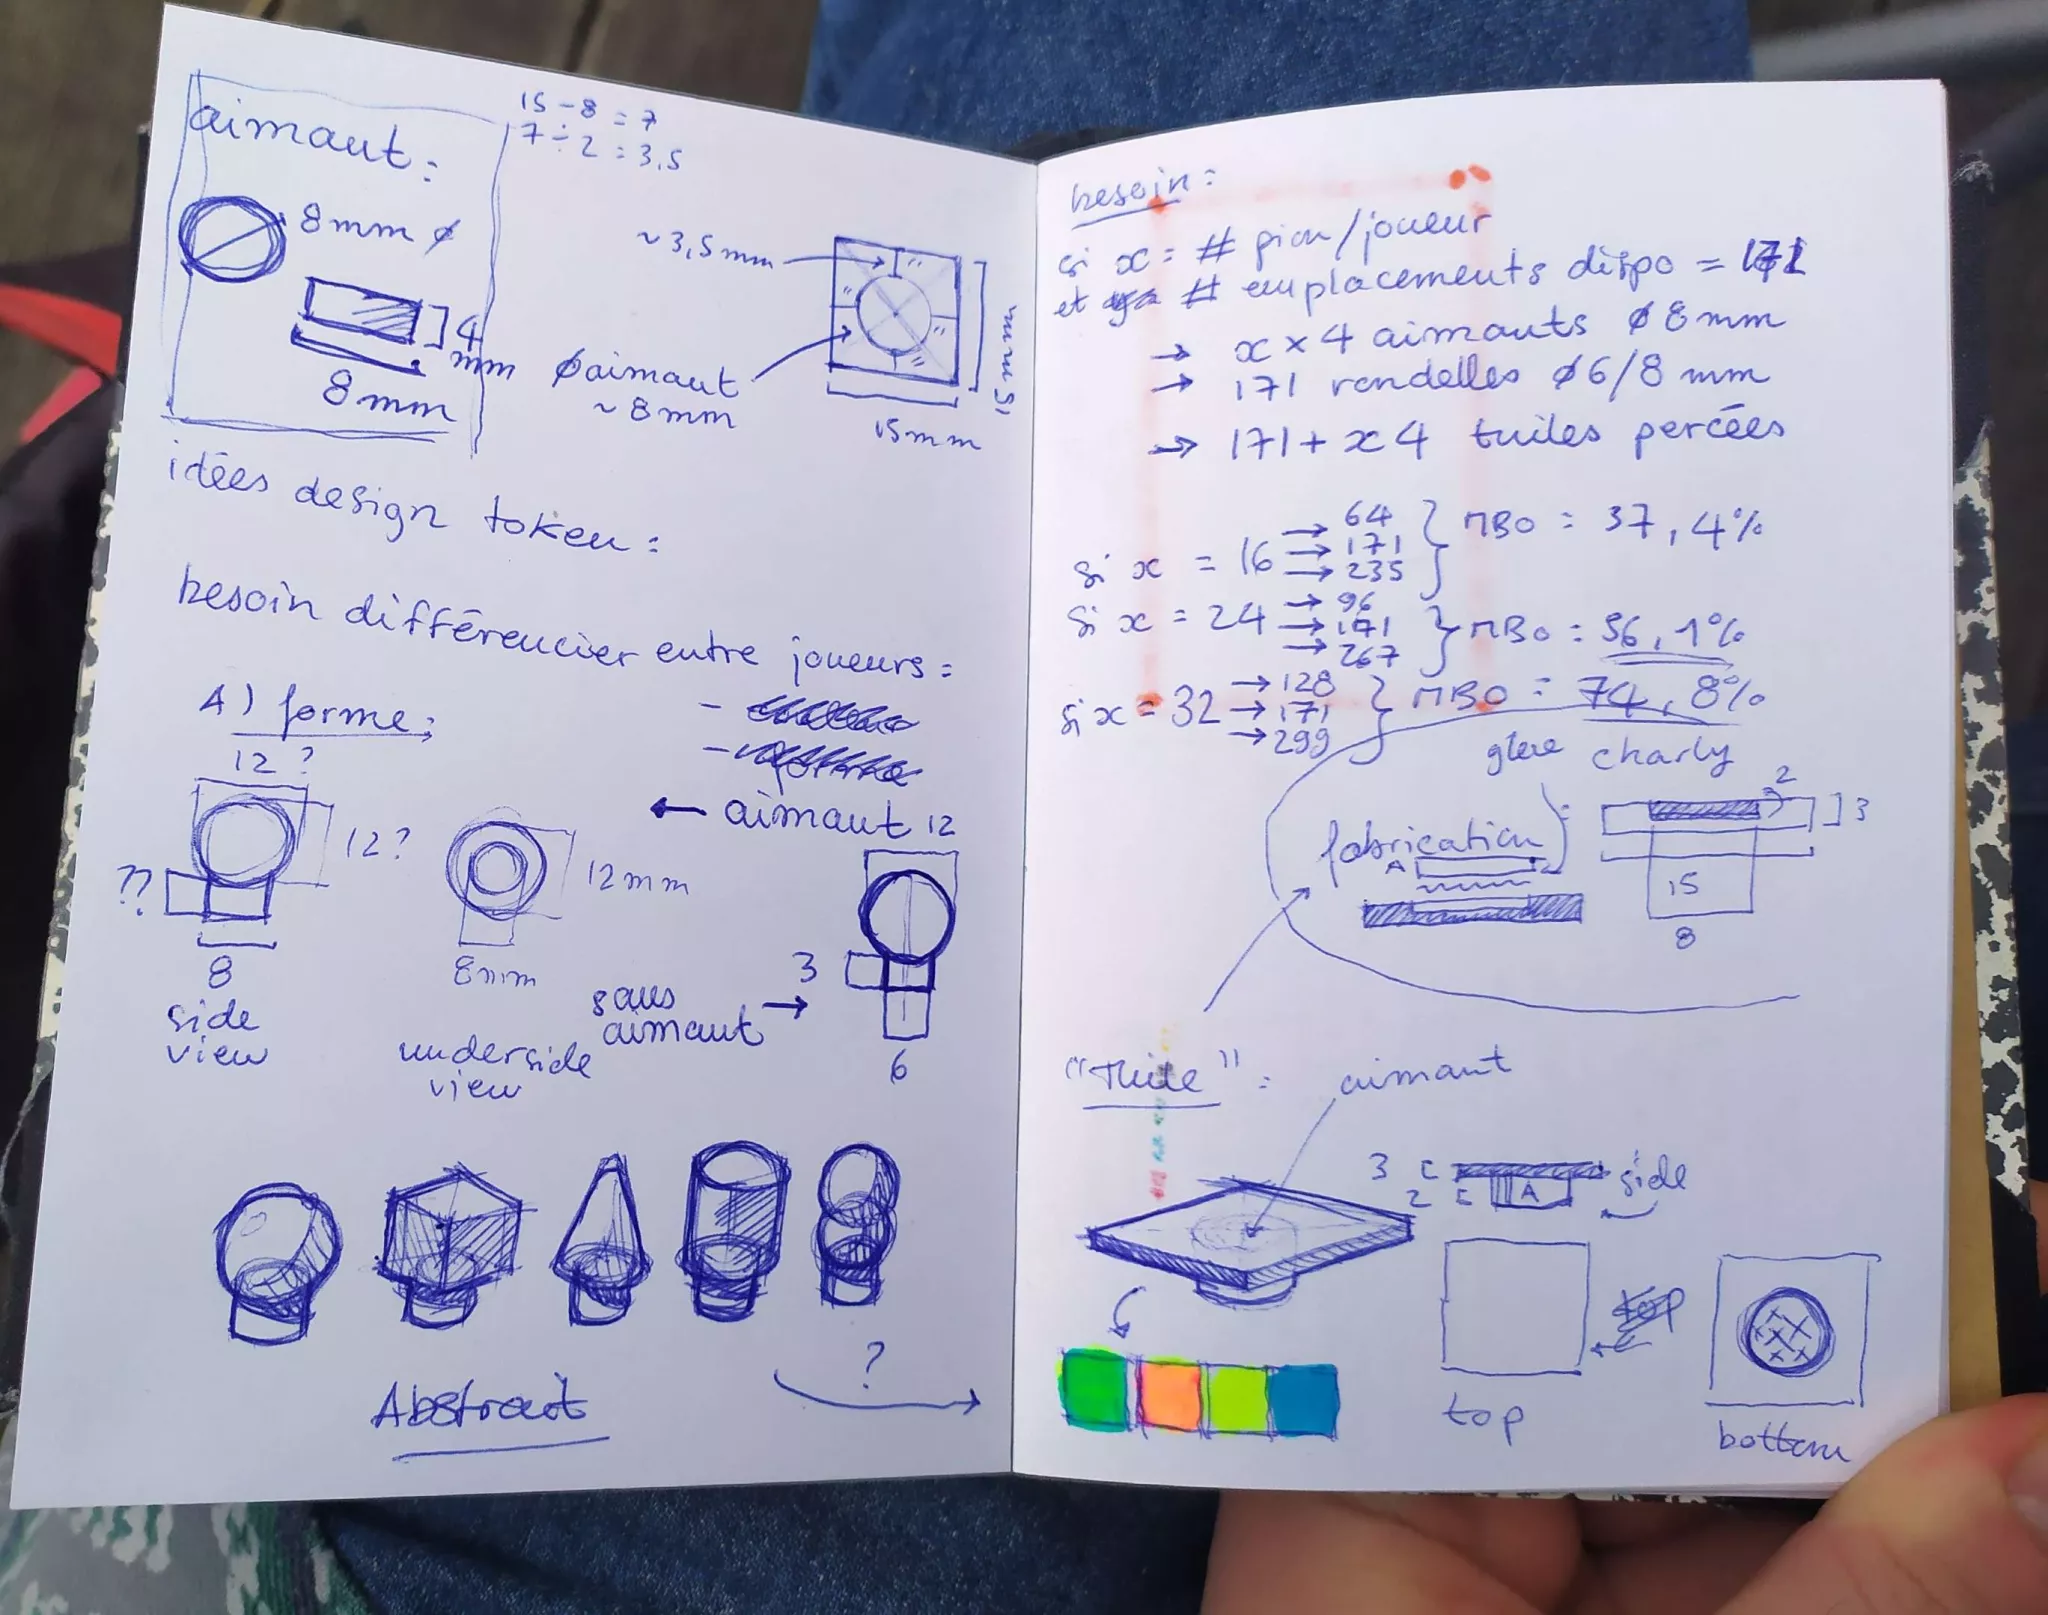 aimant:
8mm ø
4
mm
8mm
15 - 8 = 7
7 ÷ 2 = 3,5
~3,5mm
øaimant
~8mm
15mm
15mm
idées design token:
besoin différencier entre joueurs =
A) forme:
12?
12?
??
8
side
view
12mm
8mm
underside
view
← aimant
12
3
sans
aimant →
6
?
Abstract
besoin:
si x = # pion/joueur
et # emplacements dispo = 171
→ x × 4 aimants ø 8mm
→ 171 rondelles ø6/8 mm
→ 171 + x4 tuiles percées
si x = 16 → 64 → 171 → 235 } MBO = 37,4%
si x = 24 → 96 → 171 → 267 } MBO = 56,1%
si x = 32 → 128 → 171 → 299 } MBO = 74,8%
charly
fabrication
A
2
3
15
8
"Tuile":
aimant
3
2
A
side
top
top
bottom